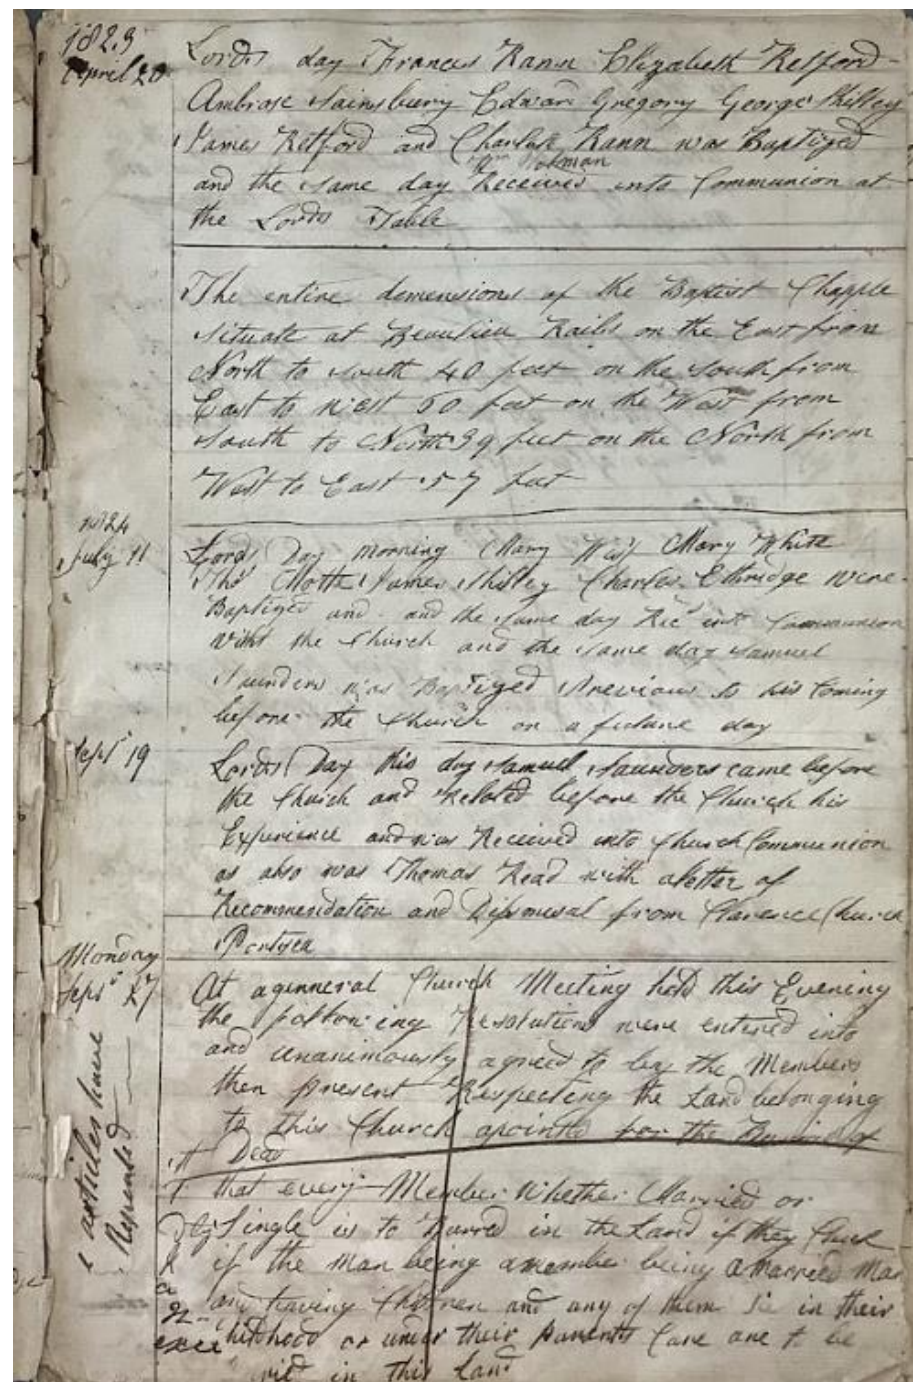 1823
April 20
Lords day Frances Rann Elizabeth Retford
Ambrose Sainsbury Edward Gregory George Shilley
James Retford and Charlotte Rann was Baptized
and the same day Received into Communion at
the Lords Table
The entire demensions of the Baptist Chapple
situate at Beaulieu Rails on the East from
North to South 40 feet on the South from
East to West 60 feet on the West from
South to North 39 feet on the North from
West to East 57 feet
1824
July 11
Lords Day morning Mary Mary White
Thos Mott James Shilley Charles Ethridge were
Baptized and and the same day Recd into Communion
with the Church and the same day Samuel
Saunders was Baptized Previous to his Coming
before the Church on a future day
Sept 19
Lords Day this day Samuel Saunders came before
the Church and Related before the Church his
Experience and was Received into Church Communion
as also was Thomas Read with a letter of
Recommendation and Dismissal from Clarence Church
Portsea
Monday
Sept 27
At a genneral Church Meeting held this Evening
the following Resolutions were entered into
and unanimously agreed to by the Members
then present Respecting the Land belonging
to this Church apointed for the of
Dead
articles have
Repented
that every Member Whether Married or
Single is to in the Land if they Chuse
if the Man being a member being a Married Man
and having Children and any of them Die in their
Childhood or under their Parents Care are to be
in this Land